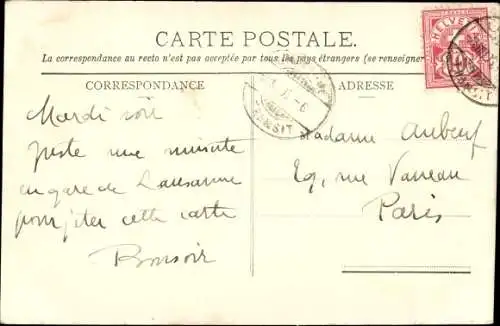 CARTE POSTALE.
La correspondance au recto n'est pas acceptée par tous les pays étrangers (se renseigner
CORRESPONDANCE
ADRESSE
HELVE
TRANSIT
Mardi soir
juste une minute
en gare de Lausanne
pour jeter cette carte
Bonsoir
Madame Aubeuf
29, rue Vaneau
Paris